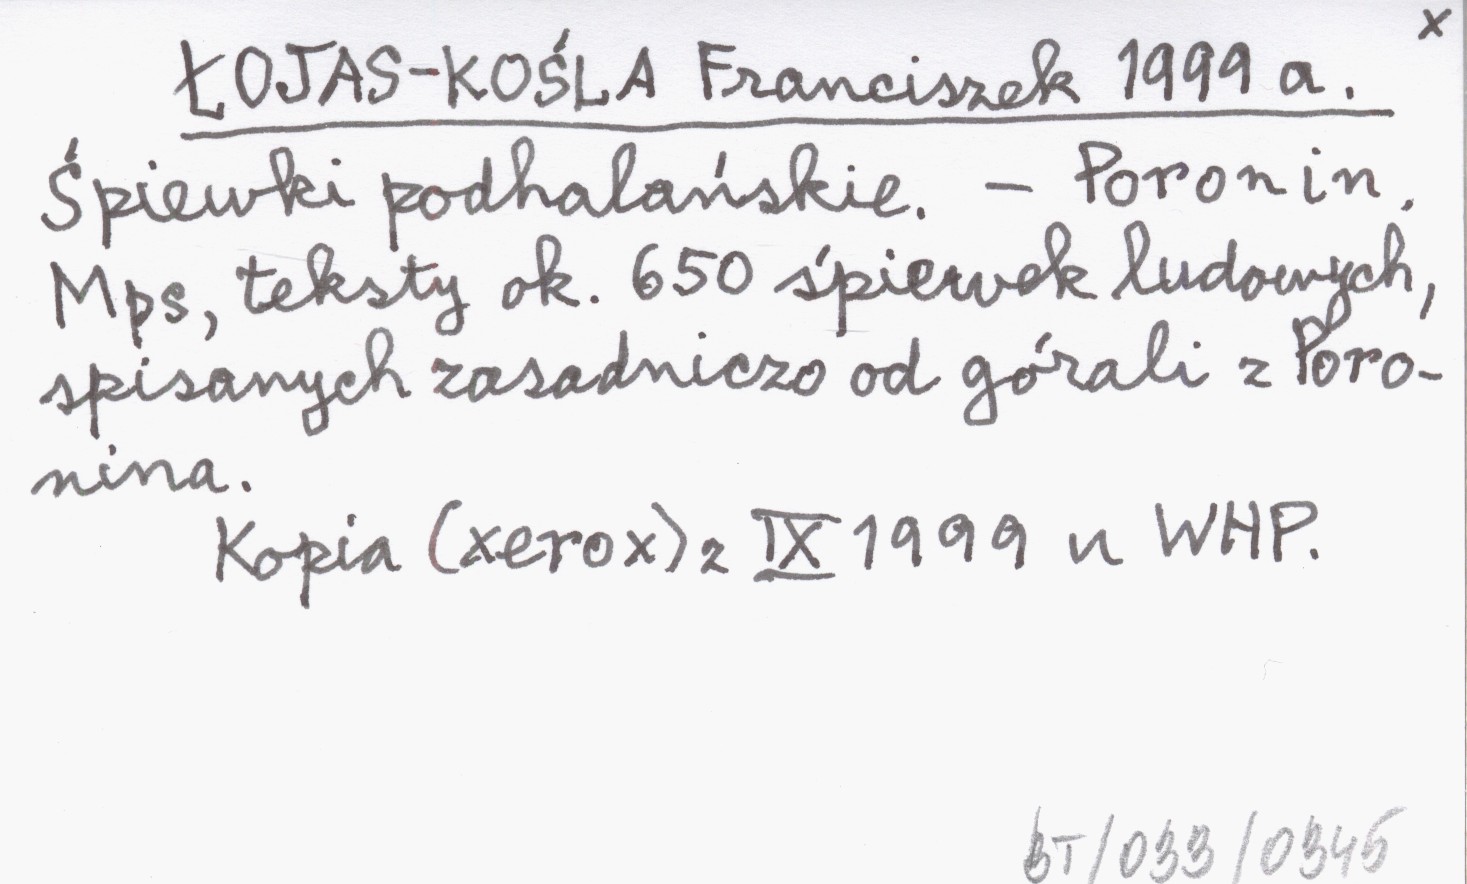 x
ŁOJAS-KOŚLA Franciszek 1999 a.
Śpiewki podhalańskie. — Poronin.
Mps, teksty ok. 650 śpiewek ludowych,
spisanych zasadniczo od górali z Poro-
nina.
Kopia (xerox) z IX 1999 u WHP.
BT/033/0345